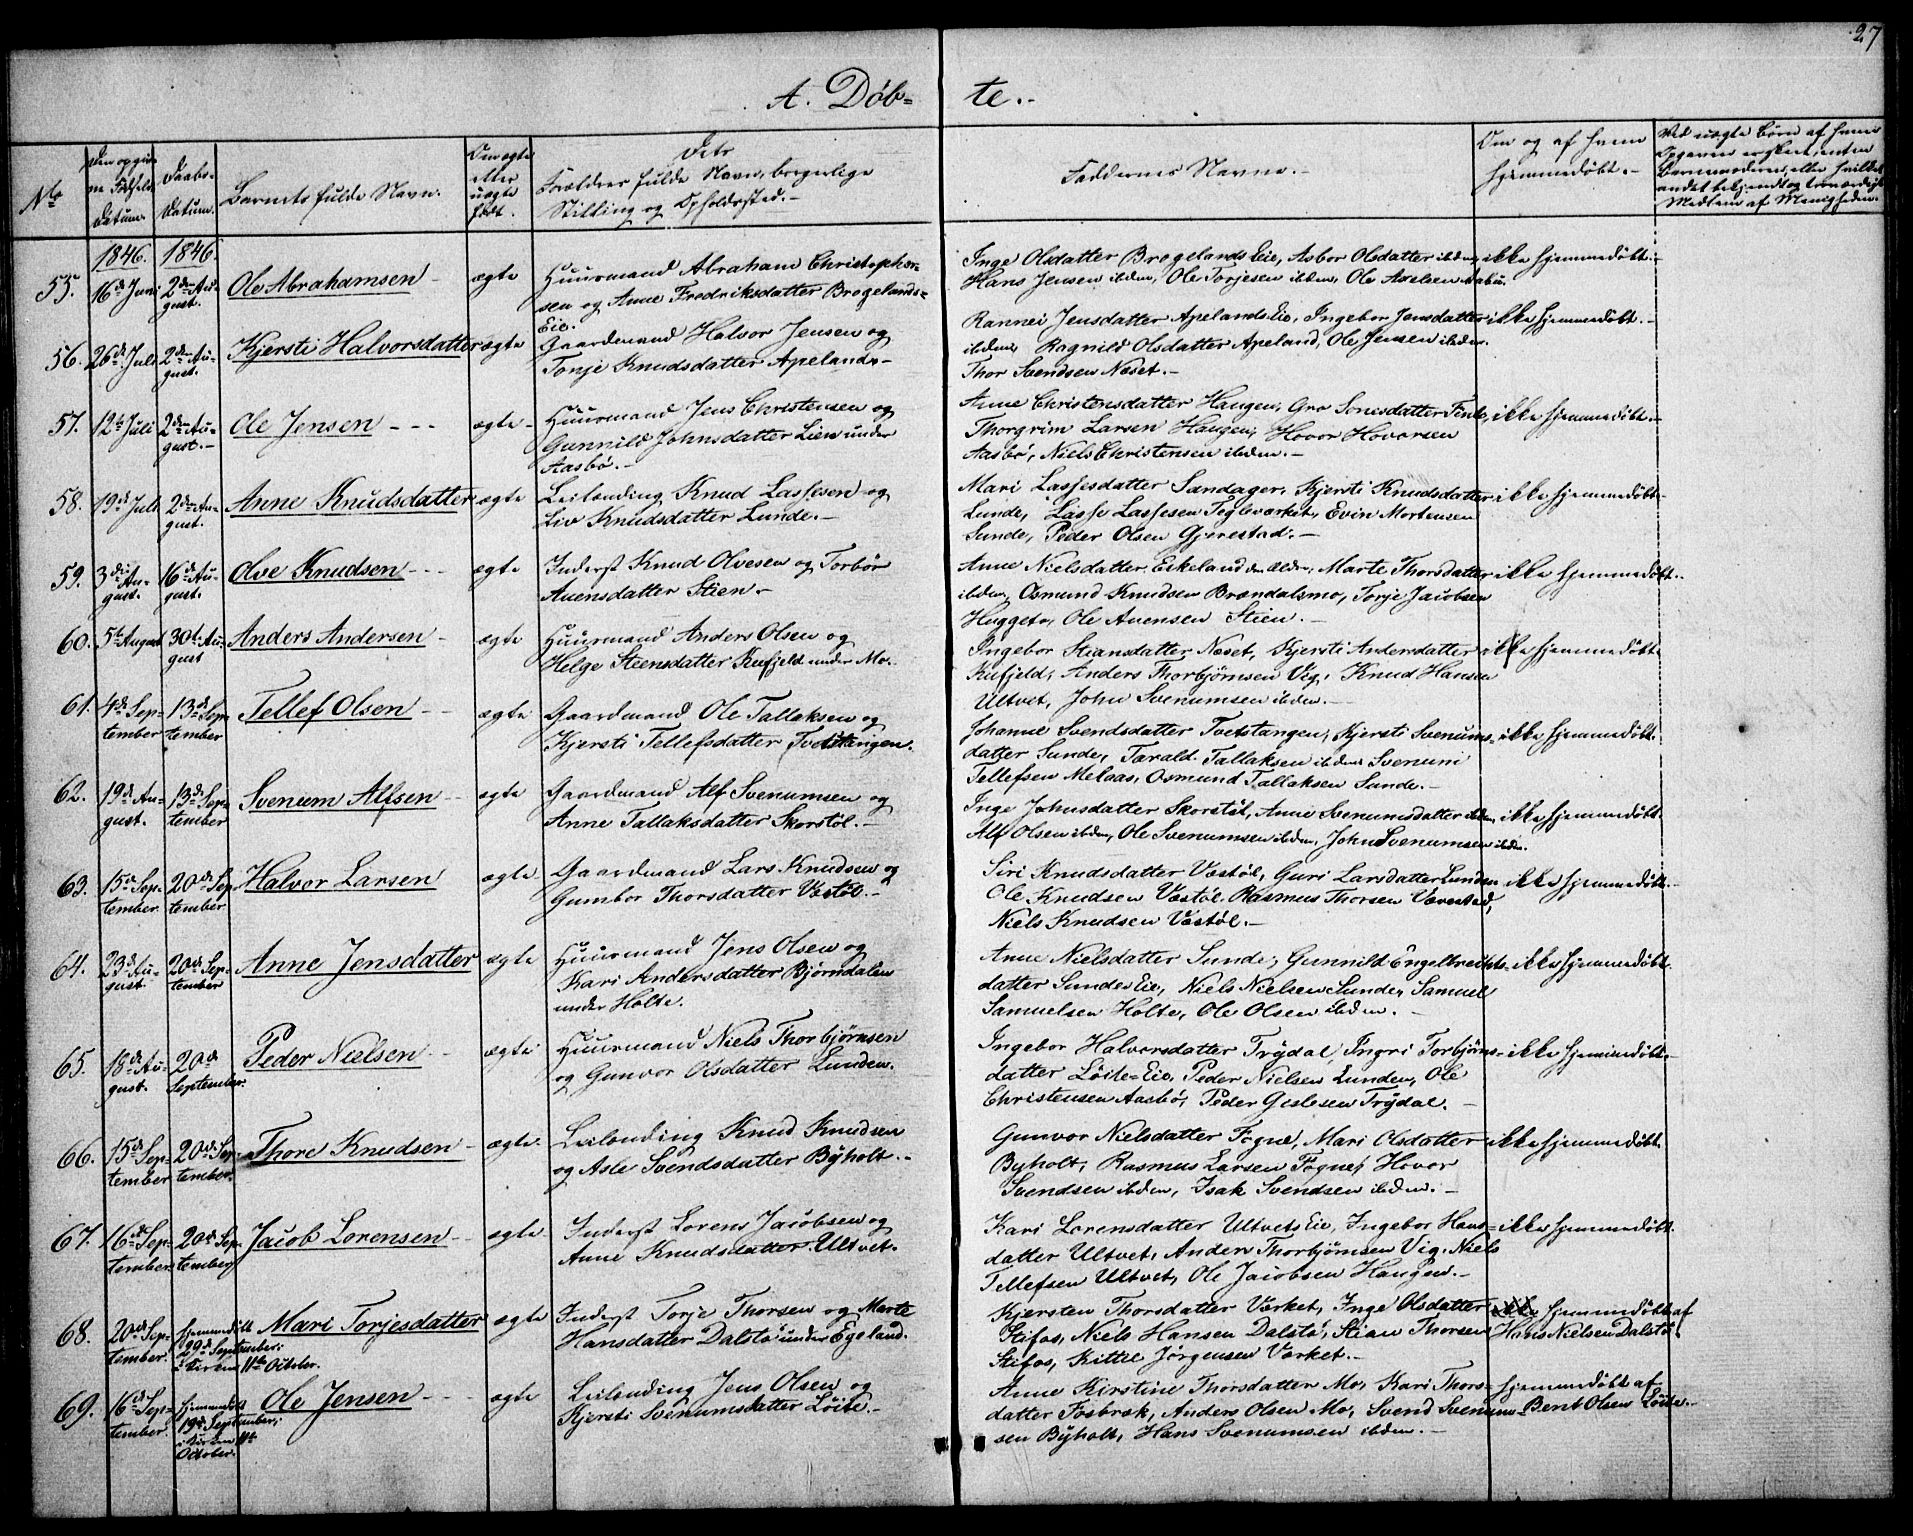 27
A. Døb-
te.-
No
Den opgiv-
ne Fødsels
Datum.
Daabs-
Datum.
Barnets fulde Navn.
Om ægte
eller
uægte
født.
Dets
Forældres fulde Navn, borgerlige
Stilling og Opholdssted.-
Faddernes Navne.-
Om og af hvem
hjemmedøbt.-
Ved uægte Børn af hvem
Opgaven er skeet, enten
Barnemoderen, eller hvilket
andet bekjendt og troværdigt
Medlem af Menigheden.
1846. 1846.
55. 16de Juni 2den Au-
gust. Ole Abrahamsen - ægte
Huurmand Abraham Christopher-
sen og Anne Fredriksdatter Brøgelands-
Eie.
Inge Olsdatter Brøgelands Eie, Asbor Olsdatter ibden,
Hans Jensen ibden, Ole Torjesen ibden, Ole Axelsen Aabu.
ikke hjemmedøbt.-
56. 26de Juli 2den Au-
gust. Kjersti Halvorsdatter ægte
Gaardmand Halvor Jensen og
Tonje Knudsdatter Apeland.-
Rannei Jensdatter Apelands Eie, Ingebor Jensdatter
ibden, Ragnild Olsdatter Apeland, Ole Jensen ibden.
Thor Svendsen Næset.-
ikke hjemmedøbt.-
57. 12te Juli 2den Au-
gust.- Ole Jensen - - - ægte-
Huurmand Jens Christensen og
Gunnild Johnsdatter Lien under
Aasbø.-
Anne Christensdatter Haugen, Gro Sonesdatter
Thorgrim Larsen Haugen, Hovor Hovorsen
Aasbø, Niels Christensen ibden.-
ikke hjemmedøbt.-
58. 19de Juli 2den Au-
gust. Anne Knudsdatter ægte
Leilænding Knud Lassesen og
Liv Knudsdatter Lunde.-
Mari Lassesdatter Sandager, Kjersti Knudsdatter
Lunde, Lasse Lassesen Teglværket, Evin Mortensen
Sunde, Peder Olsen Gjerestad.-
ikke hjemmedøbt-
59. 3die Au-
gust. 16de Au-
gust. Olve Knudsen - - - ægte
Inderst Knud Olvesen og Torbør
Auensdatter Stien.-
Anne Nielsdatter Eskeland den ældre, Marte Thorsdatter
ibden, Osmund Knudsen Brændalsmo, Torje Jacobsen
Huggeto, Ole Auensen Stien.-
ikke hjemmedøbt.
60. 5te August 30te Au-
gust Anders Andersen - ægte
Huurmand Anders Olsen og
Helge Steensdatter Rufjeld under Mo.-
Ingebor Stiansdatter Næset, Kjersti Andersdatter
Rufjeld, Anders Thorbjørnsen Vig, Knud Hansen
Ultvet, John Svenumsen ibden.-
ikke hjemmedøbt.
61. 4de Sep-
tember 13de Sep-
tember Tellef Olsen - - ægte
Gaardmand Ole Tallaksen og
Kjersti Tellefsdatter Tvetstangen.
Johanne Svendsdatter Tvetstangen, Kjersti Svenums-
datter Sunde, Tarald Tallaksen ibden Svenum
Tellefsen Melaas, Osmund Tallaksen Sunde.-
ikke hjemmedøbt.
62. 19de Au-
gust. 13de Sep-
tember Svenum Alfsen - - ægte
Gaardmand Alf Svenumsen og
Anne Tallaksdatter Skorstøl.-
Inge Johnsdatter Skorstøl, Anne Svenumsdatter ibden,
Alf Olsen ibden, Ole Svenumsen ibden, John Svenumsen ibden.
ikke hjemmedøbt.
63. 15de Sep-
tember. 20de Sep-
tember Halvor Larsen ægte
Gaardmand Lars Knudsen og
Gumbor Thorsdatter Vastøl.-
Siri Knudsdatter Vastøl, Guri Larsdatter Lunden
Ole Knudsen Vastøl, Rasmus Thorsen Vævestad,
Niels Knudsen Vastøl.-
ikke hjemmedøbt.-
64. 23de Au-
gust. 20de Sep-
tember Anne Jensdatter ægte
Huurmand Jens Olsen og
Kari Andersdatter Bjørndalen
under Holte.
Anne Nielsdatter Sunde, Gunnild Engelbrechts-
datter Sundes Eie, Niels Nielsen Sunde, Samuel
Samuelsen Holte, Ole Olsen ibden.-
ikke hjemmedøbt.
65. 18de Au-
gust. 20de
September. Peder Nielsen - ægte
Huurmand Niels Thorbjørnsen
og Gunvor Olsdatter Lunden.
Ingebor Halvorsdatter Trydal, Ingri Torbjørns-
datter Løite-Eie, Peder Nielsen Lunden, Ole
Christensen Aasbø, Peder Gislesen Trydal.-
ikke hjemmedøbt-
66. 15de Sep-
tember 20de Sep-
tember. Thore Knudsen - ægte
Leilending Knud Knudsen
og Asle Svendsdatter Byholt.-
Gunvor Nielsdatter Fogne, Mari Olsdatter
Byholt, Rasmus Larsen Fogne, Hovor
Svendsen ibden, Isak Svendsen ibden.-
ikke hjemmedøbt.
67. 16de Sep-
tember 20de Sep-
tember Jacob Lorensen - ægte
Inderst Lorens Jacobsen og
Anne Knudsdatter Ultvet.
Kari Lorensdatter Ultvets Eie, Ingebor Hans-
datter Ultvet, Anders Thorbjørnsen Vig, Niels
Tellefsen Ultvet, Ole Jacobsen Haugen.-
ikke hjemmedøbt.
68. 20de Sep-
tember. hjemmedøbt
29de September;
i Kirken 11te October. Mari Torjesdatter ægte
Inderst Torje Thorsen og Marte
Hansdatter Dalstø under Egeland.
Kjersten Thorsdatter Værket, Inge Olsdatter
Stifos, Niels Hansen Dalstø, Stian Thorsen
Stifos, Kittil Jørgensen Værket.-
hjemmedøbt af
Hans Nielsen Dalstø
69. 16de Sep-
tember. hjemmedøbt
19de September;
i Kirken 11te
October. Ole Jensen - - ægte
Leilending Jens Olsen og
Kjersti Svenumsdatter Løite.-
Anne Kirstine Thorsdatter Mo, Kari Thors-
datter Fosbræk, Anders Olsen Mo, Svend Svenum-
sen Byholt, Hans Svenumsen ibden.-
hjemmedøbt af
Bent Olsen Løite.-